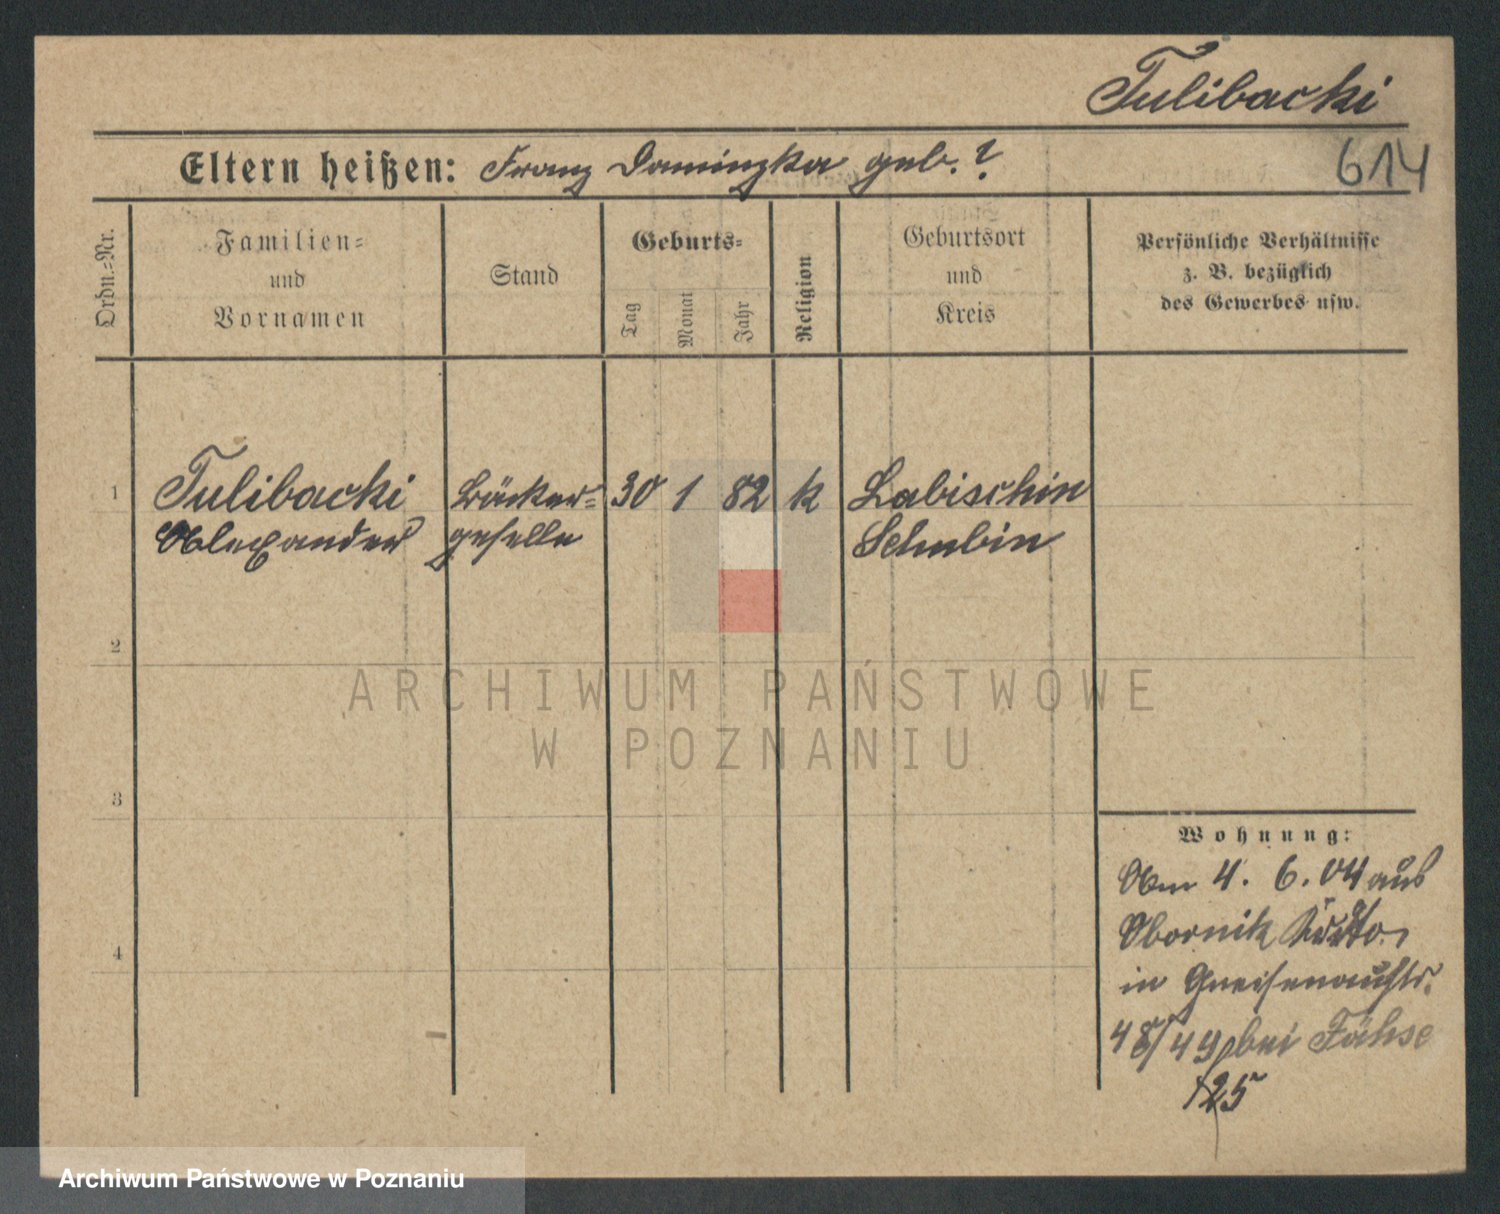 Tulibacki
614
Eltern heißen: Franz Dominzka geb. ?
Ordn.-Nr.
Familien-
und
Vornamen
Stand
Geburts-
Tag
Monat
Jahr
Religion
Geburtsort
und
Kreis
Persönliche Verhältnisse
z. B. bezüglich
des Gewerbes usw.
1
Tulibacki
Alexander
Bäcker-
geselle
30 1 82
k
Labischin
Schubin
2
3
4
Wohnung:
Am 4. 6. 04 aus
Obornik
in Gneisenaustr.
48/49 bei Fähse
125
ARCHIWUM PAŃSTWOWE
W POZNANIU
Archiwum Państwowe w Poznaniu